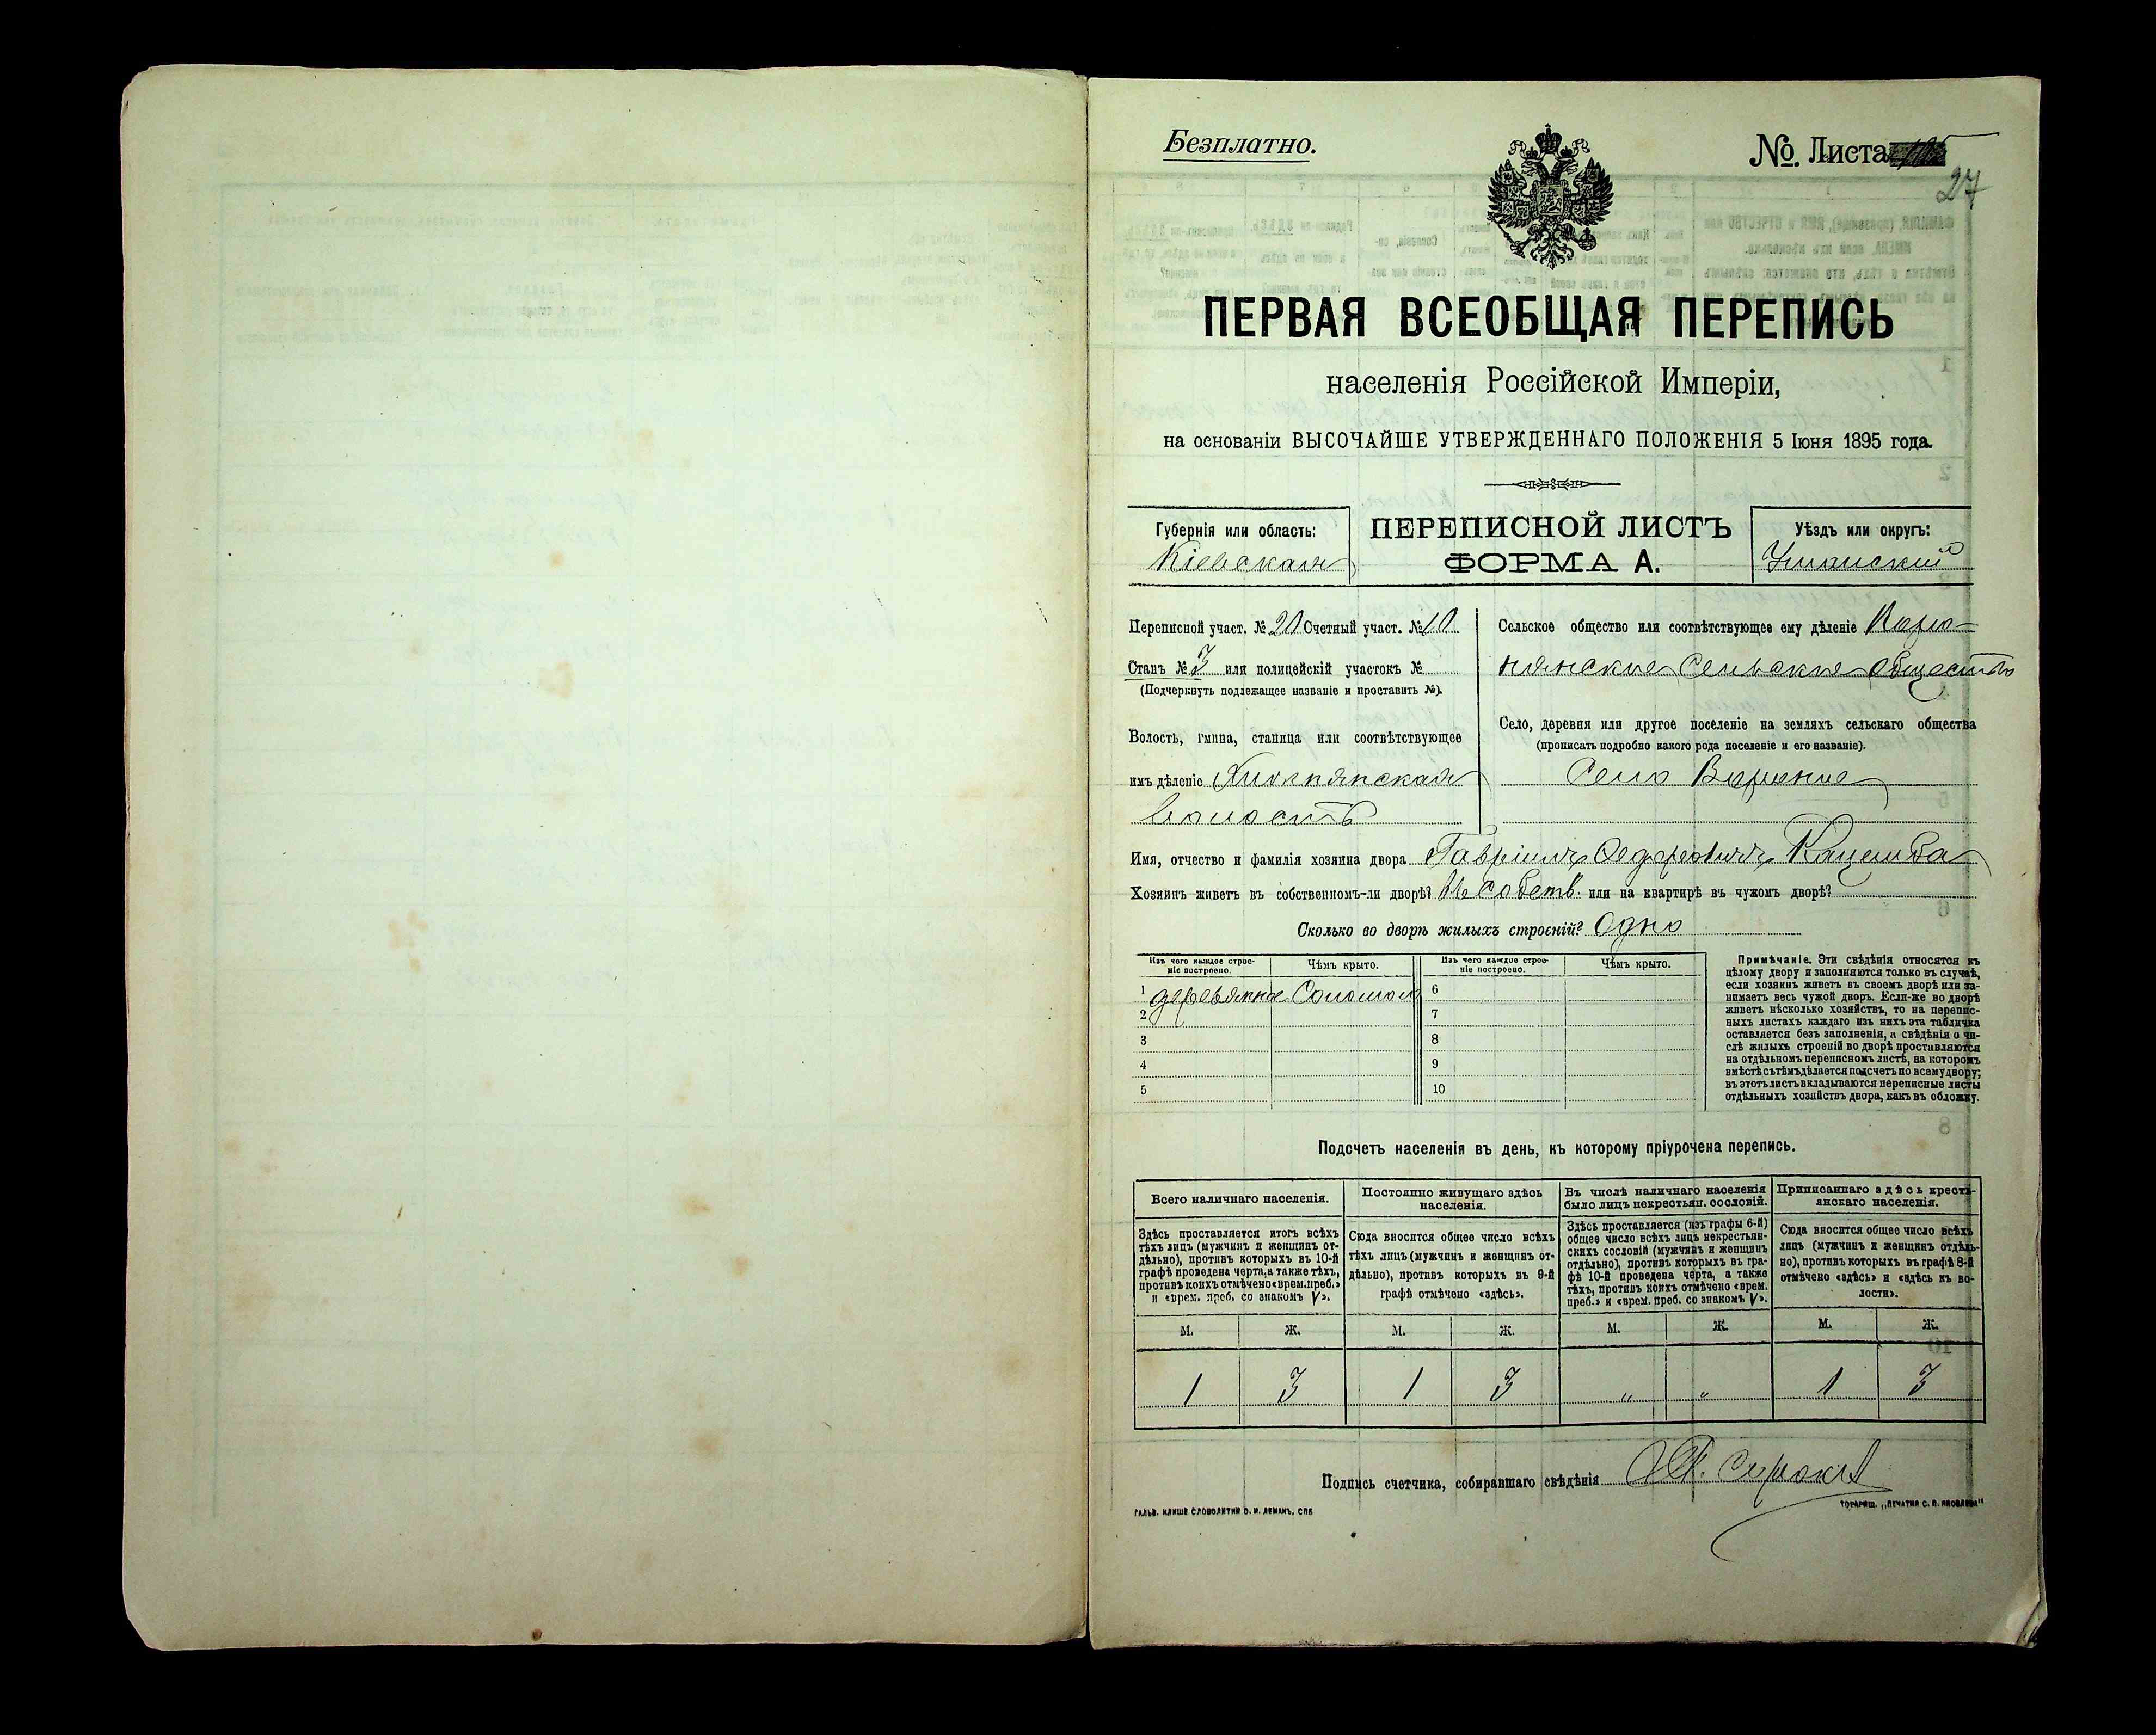 Безплатно.
№. Листа
27
ПЕРВАЯ ВСЕОБЩАЯ ПЕРЕПИСЬ
населенія Россійской Имперіи,
на основаніи ВЫСОЧАЙШЕ УТВЕРЖДЕННАГО ПОЛОЖЕНІЯ 5 Іюня 1895 года.
Губернія или область:
Кіевская
ПЕРЕПИСНОЙ ЛИСТЪ
ФОРМА А.
Уѣздъ или округъ:
Уманский
Переписной участ. № 20 Счетный участ. № 10
Станъ № 3 или полицейскій участокъ №
(Подчеркнуть подлежащее названіе и проставить №).
Волость, гмина, станица или соотвѣтствующее
имъ дѣленіе
волость
Сельское общество или соотвѣтствующее ему дѣленіе
сельское общество
Село, деревня или другое поселеніе на земляхъ сельскаго общества
(прописать подробно какого рода поселеніе и его названіе).
Село
Имя, отчество и фамилія хозяина двора
Хозяинъ живетъ въ собственномъ-ли дворѣ? Въ собств. или на квартирѣ въ чужомъ дворѣ?
Сколько во дворѣ жилыхъ строеній? Одно
Изъ чего каждое строе-
ніе построено.
Чѣмъ крыто.
Изъ чего каждое строе-
ніе построено.
Чѣмъ крыто.
1 деревянное Соломой
2
3
4
5
6
7
8
9
10
Примѣчаніе. Эти свѣдѣнія относятся къ
цѣлому двору и заполняются только въ случаѣ,
если хозяинъ живетъ въ своемъ дворѣ или за-
нимаетъ весь чужой дворъ. Если-же во дворѣ
живетъ нѣсколько хозяйствъ, то на перепис-
ныхъ листахъ каждаго изъ нихъ эта табличка
оставляется безъ заполненія, а свѣдѣнія о чи-
слѣ жилыхъ строеній во дворѣ проставляются
на отдѣльномъ переписномъ листѣ, на которомъ
вмѣстѣ съ тѣмъ дѣлается подсчетъ по всему двору;
въ этотъ листъ вкладываются переписные листы
отдѣльныхъ хозяйствъ двора, какъ въ обложку.
Подсчетъ населенія въ день, къ которому пріурочена перепись.
Всего наличнаго населенія.
Здѣсь проставляется итогъ всѣхъ
тѣхъ лицъ (мужчинъ и женщинъ от-
дѣльно), противъ которыхъ въ 10-й
графѣ проведена черта, а также тѣхъ,
противъ коихъ отмѣчено «врем. преб.»
и «врем. преб. со знакомъ V».
Постоянно живущаго здѣсь
населенія.
Сюда вносится общее число всѣхъ
тѣхъ лицъ (мужчинъ и женщинъ от-
дѣльно), противъ которыхъ въ 9-й
графѣ отмѣчено «здѣсь».
Въ числѣ наличнаго населенія
было лицъ некрестьян. сословій.
Здѣсь проставляется (изъ графы 6-й)
общее число всѣхъ лицъ некрестьян-
скихъ сословій (мужчинъ и женщинъ
отдѣльно), противъ которыхъ въ гра-
фѣ 10-й проведена черта, а также
тѣхъ, противъ коихъ отмѣчено «врем.
преб.» и «врем. преб. со знакомъ V».
Приписаннаго здѣсь кресть-
янскаго населенія.
Сюда вносится общее число всѣхъ
лицъ (мужчинъ и женщинъ отдѣль-
но), противъ которыхъ въ графѣ 8-й
отмѣчено «здѣсь» и «здѣсь къ во-
лости».
М. Ж. М. Ж. М. Ж. М. Ж.
1 3 1 3 „ „ 1 3
Подпись счетчика, собиравшаго свѣдѣнія
ГАЛЬВ. КЛИШЕ СЛОВОЛИТНИ О. И. ЛЕМАНЪ, СПБ
ТОВАРИЩ. „ПЕЧАТНЯ С. П. ЯКОВЛЕВА“